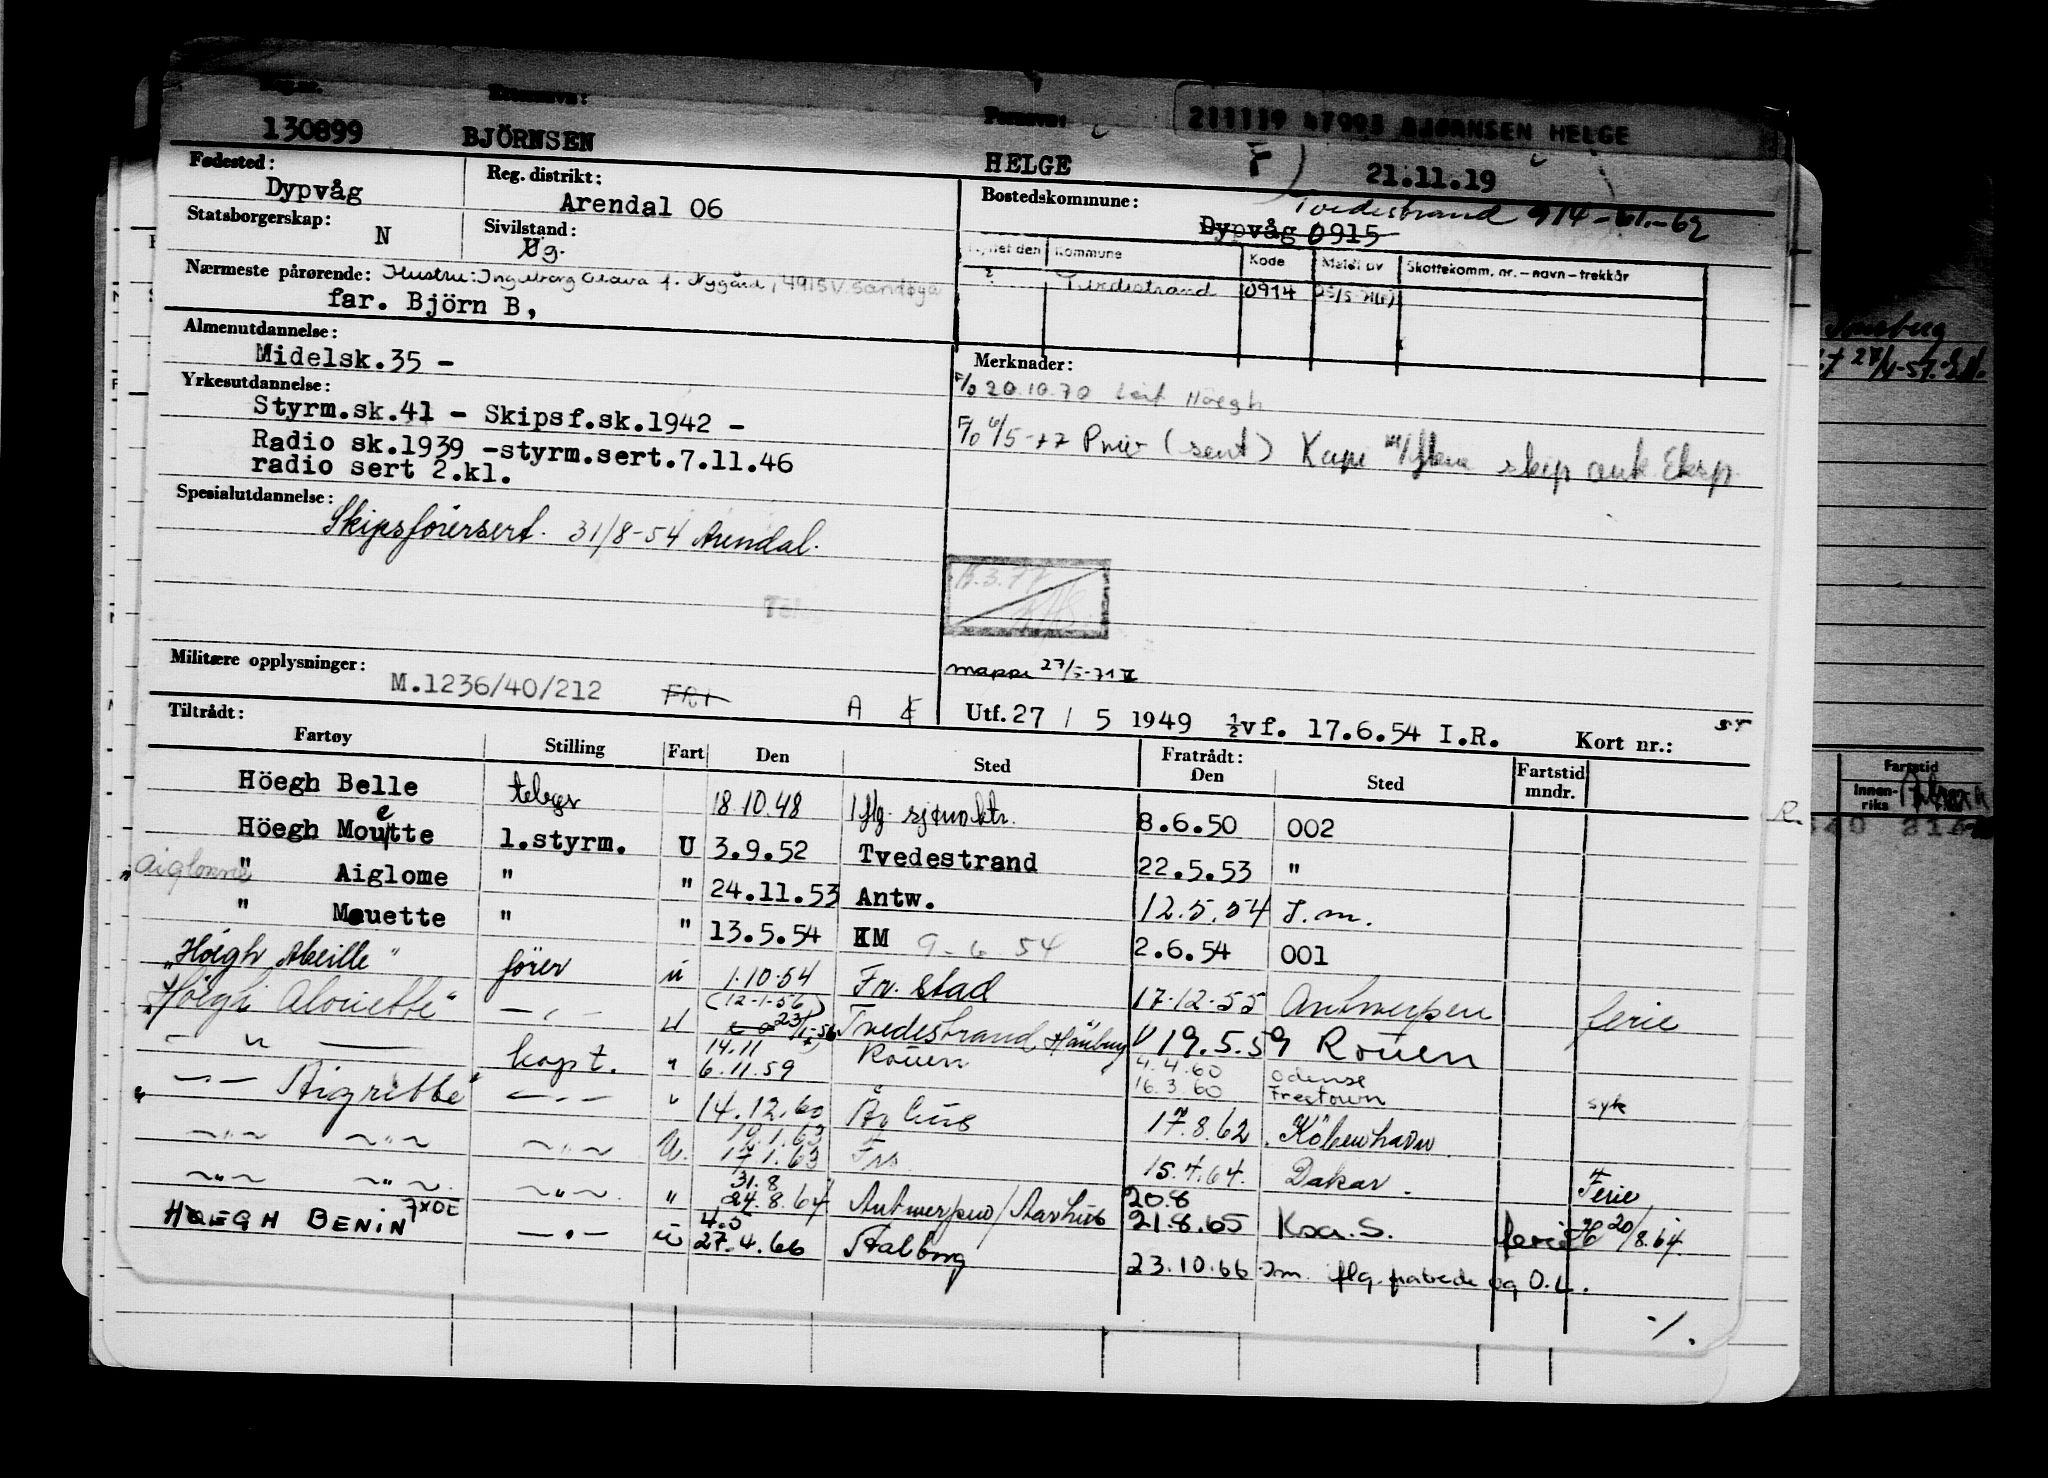 Reg.nr. Etternavn: Fornavn: 211119 47993 BJØRNSEN HELGE
130899 BJÖRNSEN HELGE 21.11.19
Fødested: Dypvåg
Reg. distrikt: Arendal 06
Bostedskommune: Tvedestrand 914-61-62
Dypvåg 0915
Statsborgerskap: N
Sivilstand: g.
Flyttet den Kommune Kode Meldt av Skattekomm. nr. – navn – trekkår
Tvedestrand 0914
Nærmeste pårørende: Hustru: Ingeborg Olava f. Nygård, 4915 V. Sandøya
far. Björn B,
Almenutdannelse:
Midelsk.35 -
Merknader:
F/o 20.10.70 Leif Höegh
Yrkesutdannelse:
Styrm.sk.41 - Skipsf.sk.1942 -
Radio sk.1939 -styrm.sert.7.11.46
radio sert 2.kl.
F/o 6/5-77 (sent) skip ank.
Spesialutdannelse:
Skipsförersert. 31/8-54 Arendal.
mappe 27/5-71
Militære opplysninger:
M.1236/40/212 FRI A
Utf. 27 / 5 1949 ½vf. 17.6.54 I.R. Kort nr.:
Tiltrådt:
Fartøy Stilling Fart Den Sted Fratrådt: Den Sted Fartstid mndr.
Höegh Belle telegr 18.10.48 iflg. sjømktr. 8.6.50 002
Höegh Mouette 1.styrm. U 3.9.52 Tvedestrand 22.5.53 "
Aiglonne " Aiglome " " 24.11.53 Antw. 12.5.54 I.m.
" Mouette " " 13.5.54 HM 9-6 54 2.6.54 001
"Höegh Abeille" förer u 1.10.54 Fr. stad 17.12.55 Antwerpen ferie
"Höegh Alouette" — " — u (12-1-56) 23/1-56 Tvedestrand Hamburg 19.5.59 Rouen
— " — kapt. " 14.11 6.11.59 Rouen 4.4.60 Odense
16.3.60 Freetown syk
" — " — Aigrette" — " — " 14.12.60 Århus 17.8.62 Köbenhavn
— " — — " — — " — U. 19.1.63 17.1.63 Frs 15.4.64. Dakar. Ferie
— " — — " — — " — " 31.8 24.8.64 Antwerpen/Aarhus 20.8 21.8.65 Ksa.S. ferie 20/8.64.
HØEGH BENIN 7XDE — " — u 4.5 27.4.66 Aalborg 23.10.66 Im. flg. frabede og O.L.
./.
Tønsberg
Fartstid
Innenriks